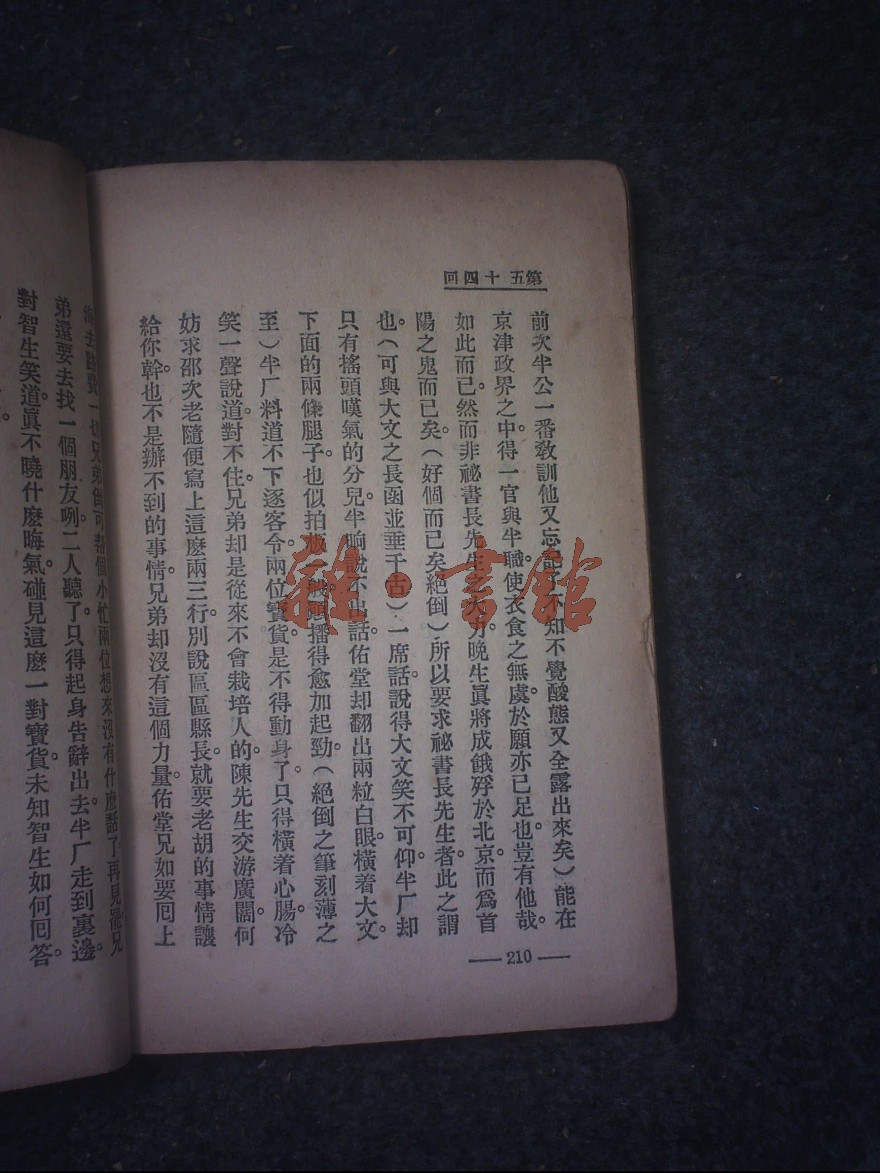 第五十四回
前次半公一番教訓他又忘記了不知不覺酸態又全露出來矣）能在
京津政界之中。得一官與半職。使衣食之無虞。於願亦已足也。豈有他哉。
如此而已。然而非祕書長先生之大力。晚生眞將成餓殍於北京。而爲首
陽之鬼而已矣（好個而已矣絕倒）所以要求祕書長先生者。此之謂
也。（可與大文之長函並垂千古）一席話。說得大文笑不可仰。半厂却
只有搖頭嘆氣的分兒。半晌說不出話。佑堂却翻出兩粒白眼。橫着大文。
下面的兩條腿子。也似拍板一般。頭播得愈加起勁。（絕倒之筆刻薄之
至）半厂料道不下逐客令。兩位寶貨。是不得動身了。只得橫着心腸。冷
笑一聲說道。對不住。兄弟却是從來不會栽培人的。陳先生交游廣闊。何
妨求邵次老隨便寫上這麽兩三行。別說區區縣長。就要老胡的事情讓
給你幹。也不是辦不到的事情。兄弟却沒有這個力量。佑堂兄如要囘上
海去。路費一切。兄弟倒可幫個小忙。兩位想來沒有什麽話了。再見罷。兄
弟還要去找一個朋友咧。二人聽了。只得起身告辭出去。半厂走到裏邊。
對智生笑道。眞不曉什麽晦氣。碰見這麽一對寶貨。未知智生如何囘答。
210
雜·書館